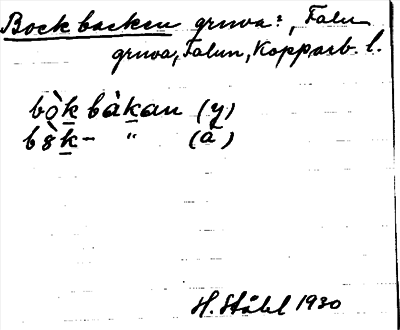 Bockbacken gruva:, Falu
gruva, Falun, Kopparb. l.
bòk bàkan (y)
bòk- " (ä)
H. Ståhl 1930